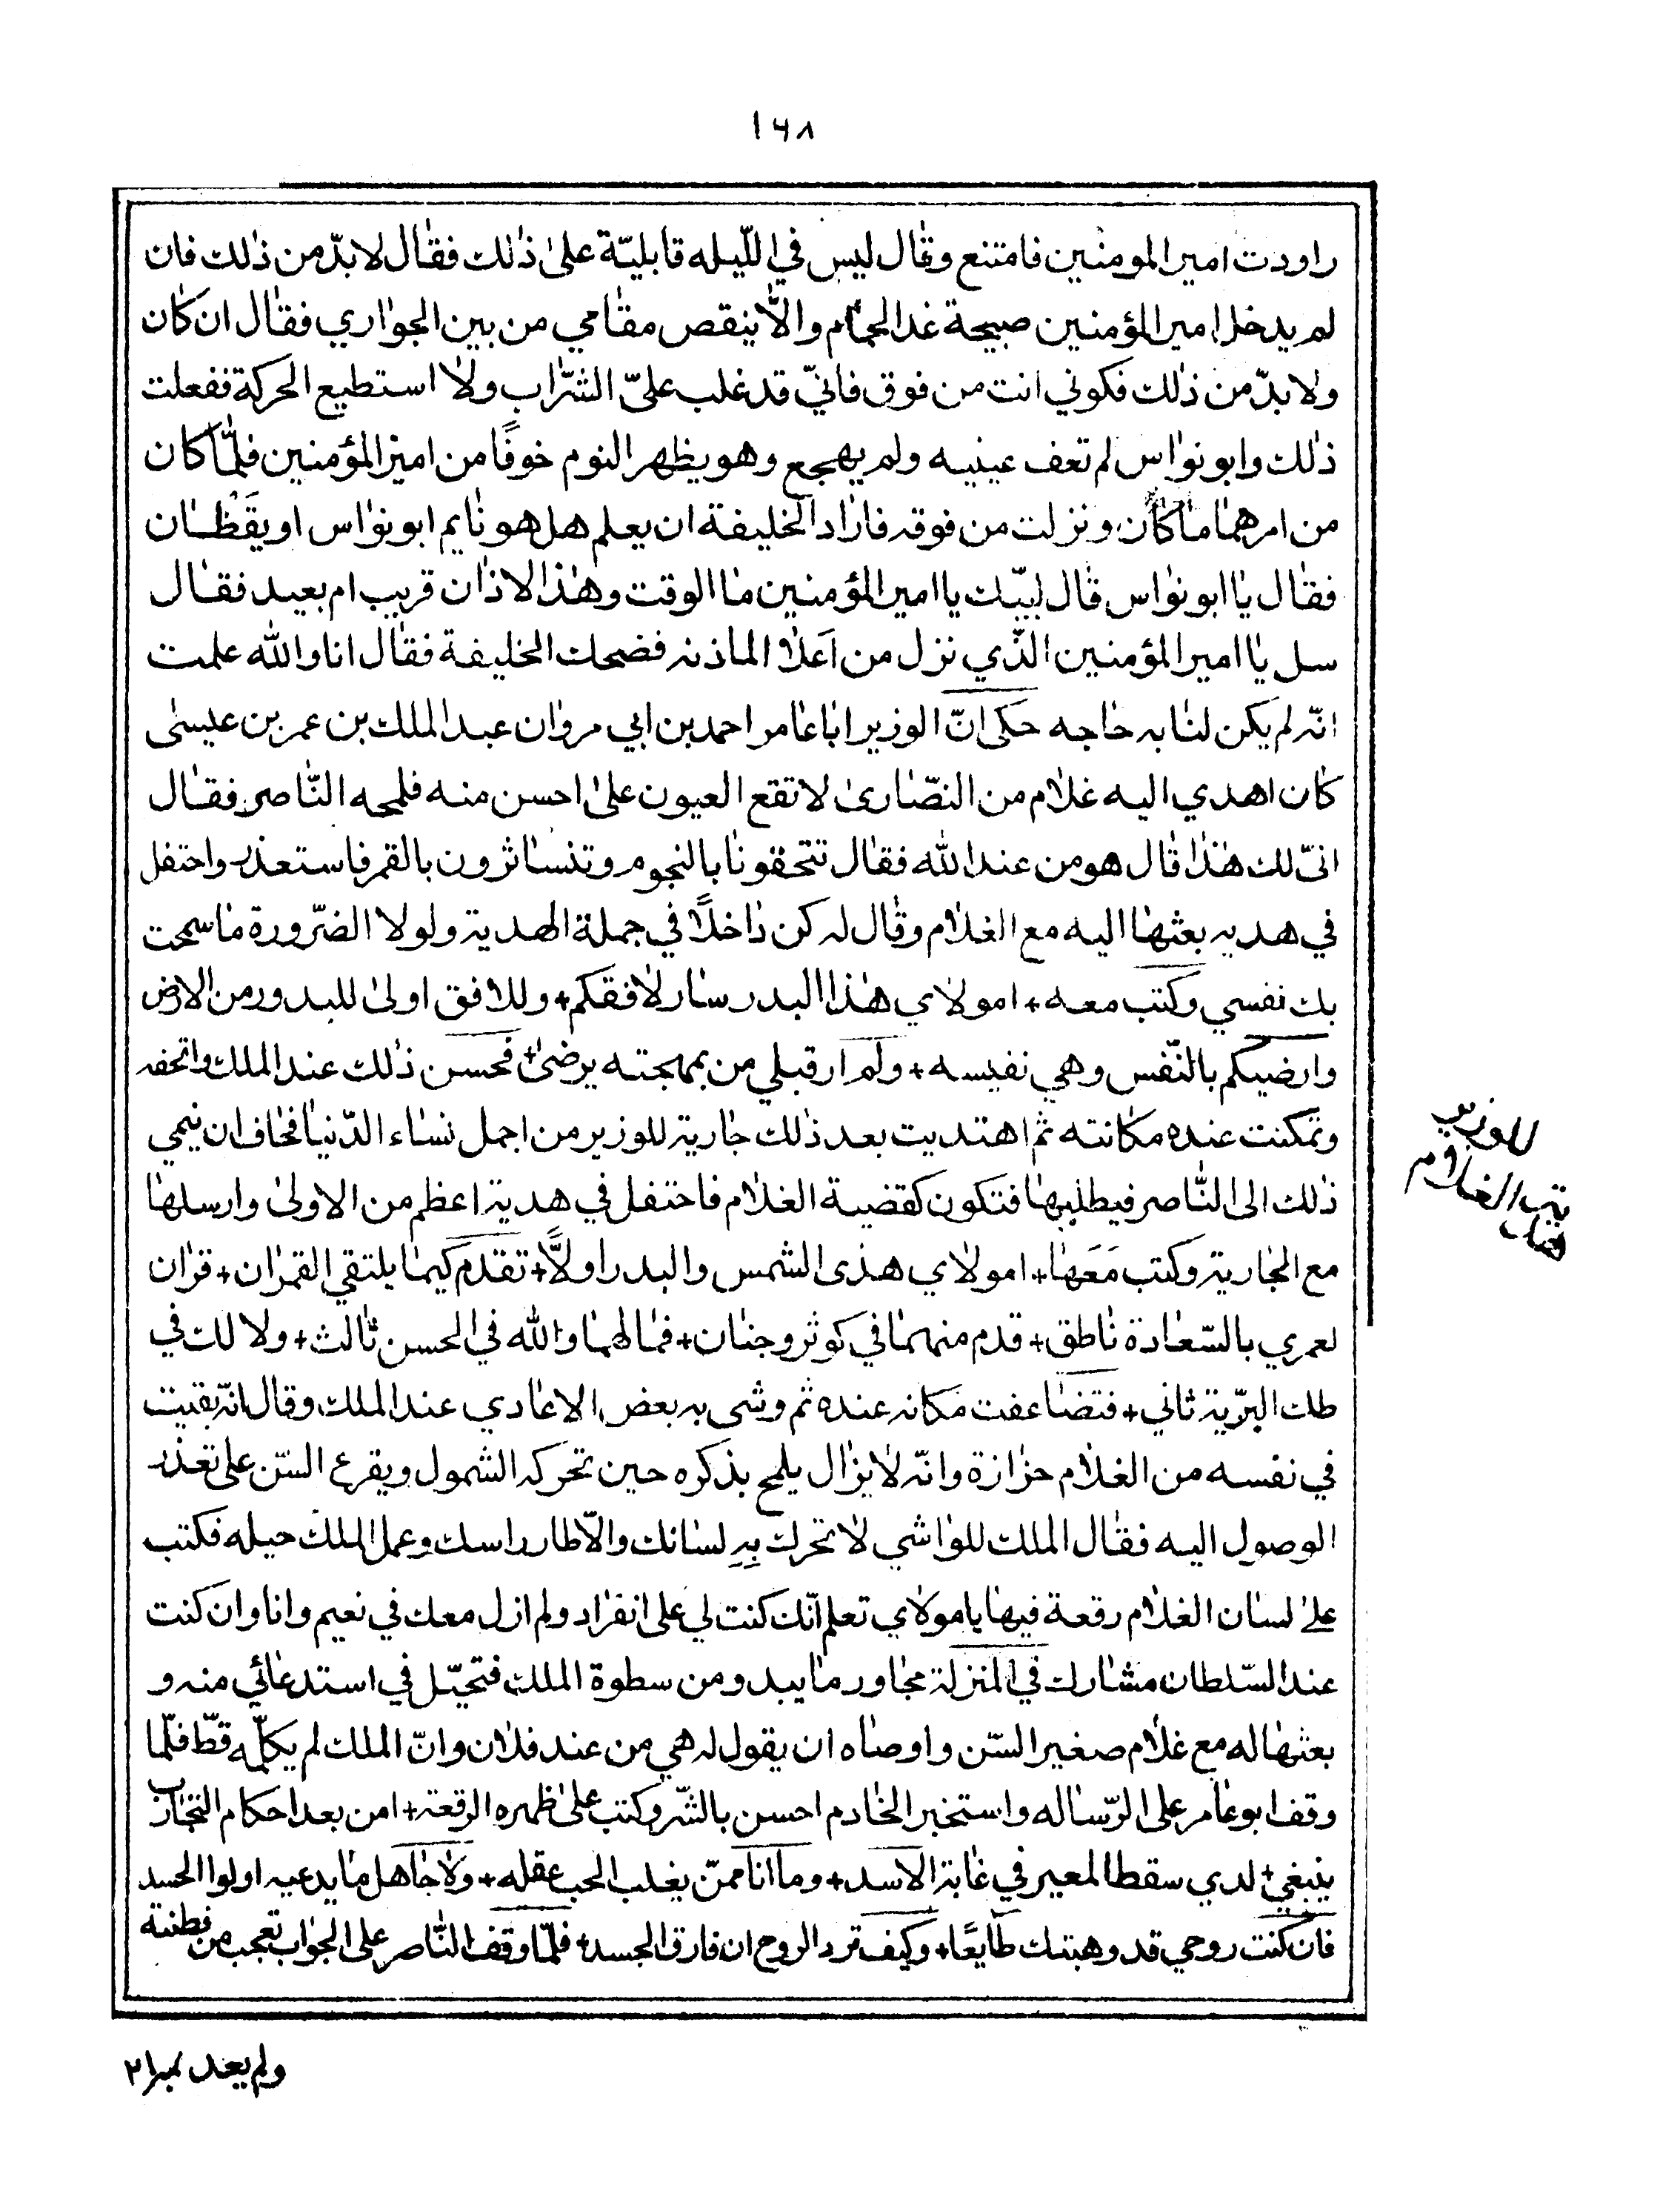 ١٦٨
راودت امير المومنين فامتنع وقال ليس في الليله قابليّة على ذلك فقال لا بدّ من ذلك فان
لم يدخل امير المؤمنين صبيحة غد الحمّام والّا ينقص مقامي من بين الجواري فقال ان كان
ولا بدّ من ذلك فكوني انت من فوق فانيّ قد غلب عليّ الشّراب ولا استطيع الحركة ففعلت
ذلك وابو نواس لم تعف عينيه ولم يهجع وهو يظهر النوم خوفًا من امير المؤمنين فلمّا كان
من امرهما ما كان ونزلت من فوقه فاراد الخليفة ان يعلم هل هو نايم ابو نواس او يقَظان
فقال يا ابو نواس قال لبيّك يا امير المؤمنين ما الوقت وهذا الاذان قريب ام بعيد فقال
سل يا امير المؤمنين الذّي نزل من اَعلا الماذنه فضحك الخليفة فقال انا والله علمت
انّه لم يكن لنا به حاجه حكى انّ الوزير ابا عامر احمد بن ابي مروان عبد الملك بن عمر بن عيسى
كان اهدي اليه غلام من النصّارى لا تقع العيون على احسن منه فلمحه النّاصر فقال
انىّ لك هذا قال هو من عند الله فقال تتحفونا بالنجوم وتنساثرون بالقمر فاستعذر واحتفل
في هديه بعثها اليه مع الغلام وقال له كن داخلًا في جملة الهدية ولولا الضّرورة ما سمحت
بك نفسي وكتب معه + امولاي هذا البدر سار لافقكم + وللافق اولى للبدور من الارض
وارضيكم بالنّفس وهي نفيسه + ولم ار قبلي من بمهجته يرضى + فحسن ذلك عند الملك واتحفه
وتمكنت عنده مكانته ثم اهتديت بعد ذلك جارية للوزير من اجمل نساء الدّنيا فخاف ان ينمي
ذلك الى النّاصر فيطلبها فتكون كقضية الغلام فاحتفل في هدية اعظم من الاولى وارسلها
مع الجارية وكتب مَعَها + امولاي هذى الشمس والبدر اولًّا + تقدم كيما يلتقي القمران + قران
لعمري بالسّعادة ناطق + قدم منهما في كوثر وجنان + فما لهما والله في الحسن ثالث + ولا لك في
طلك البرّية ثاني + فتضاعفت مكانه عنده ثم وشى به بعض الاعادي عند الملك وقال انّه بقيت
في نفسه من الغلام حزازة وانّه لا يزال يلمح بذكره حين تحركه الشمول ويقرع السّن على تعذر
الوصول اليه فقال الملك للواشي لا تحرك بِهِ لسانك والّا طار راسك وعمل الملك حيله فكتب
على لسان الغلام رقعة فيها يا مولاي تعلم انّك كنت لي على انفراد ولم ازل معك في نعيم وانا وان كنت
عند السّلطان مشارك في المنزلة مجاور ما يبدو من سطوة الملك فتحيّل في استدعائي منه و
بعثها له مع غلام صغير السّن واوصاه ان يقول له هي من عند فلان وانّ الملك لم يكلّه قطّ فلّما
وقف ابو عامر على الرّساله واستخبر الخادم احسن بالشّر وكتب على ظهره الرقعة + امن بعد احكام التجارب
ينبغي + لدي سقطا لمعير في غابة الاسد + وما انا ممّن يغلب الحب عقله + ولا جاهل ما يدعيه اولوا الحسد
فان كنت روحي قد وهبتك طايعًا + وكيف ترد الروح ان فارق الجسد + فلمّا وقف النّاصر على الجواب تعجب من فطنته
للوزير
الغلام
ولم يعد